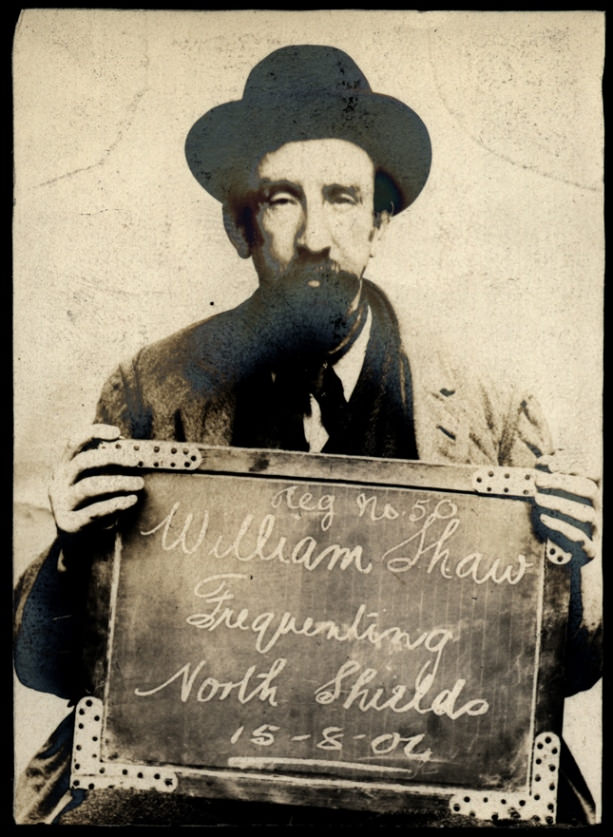 Reg No. 50
William Shaw
Frequenting
North Shields
15-8-02